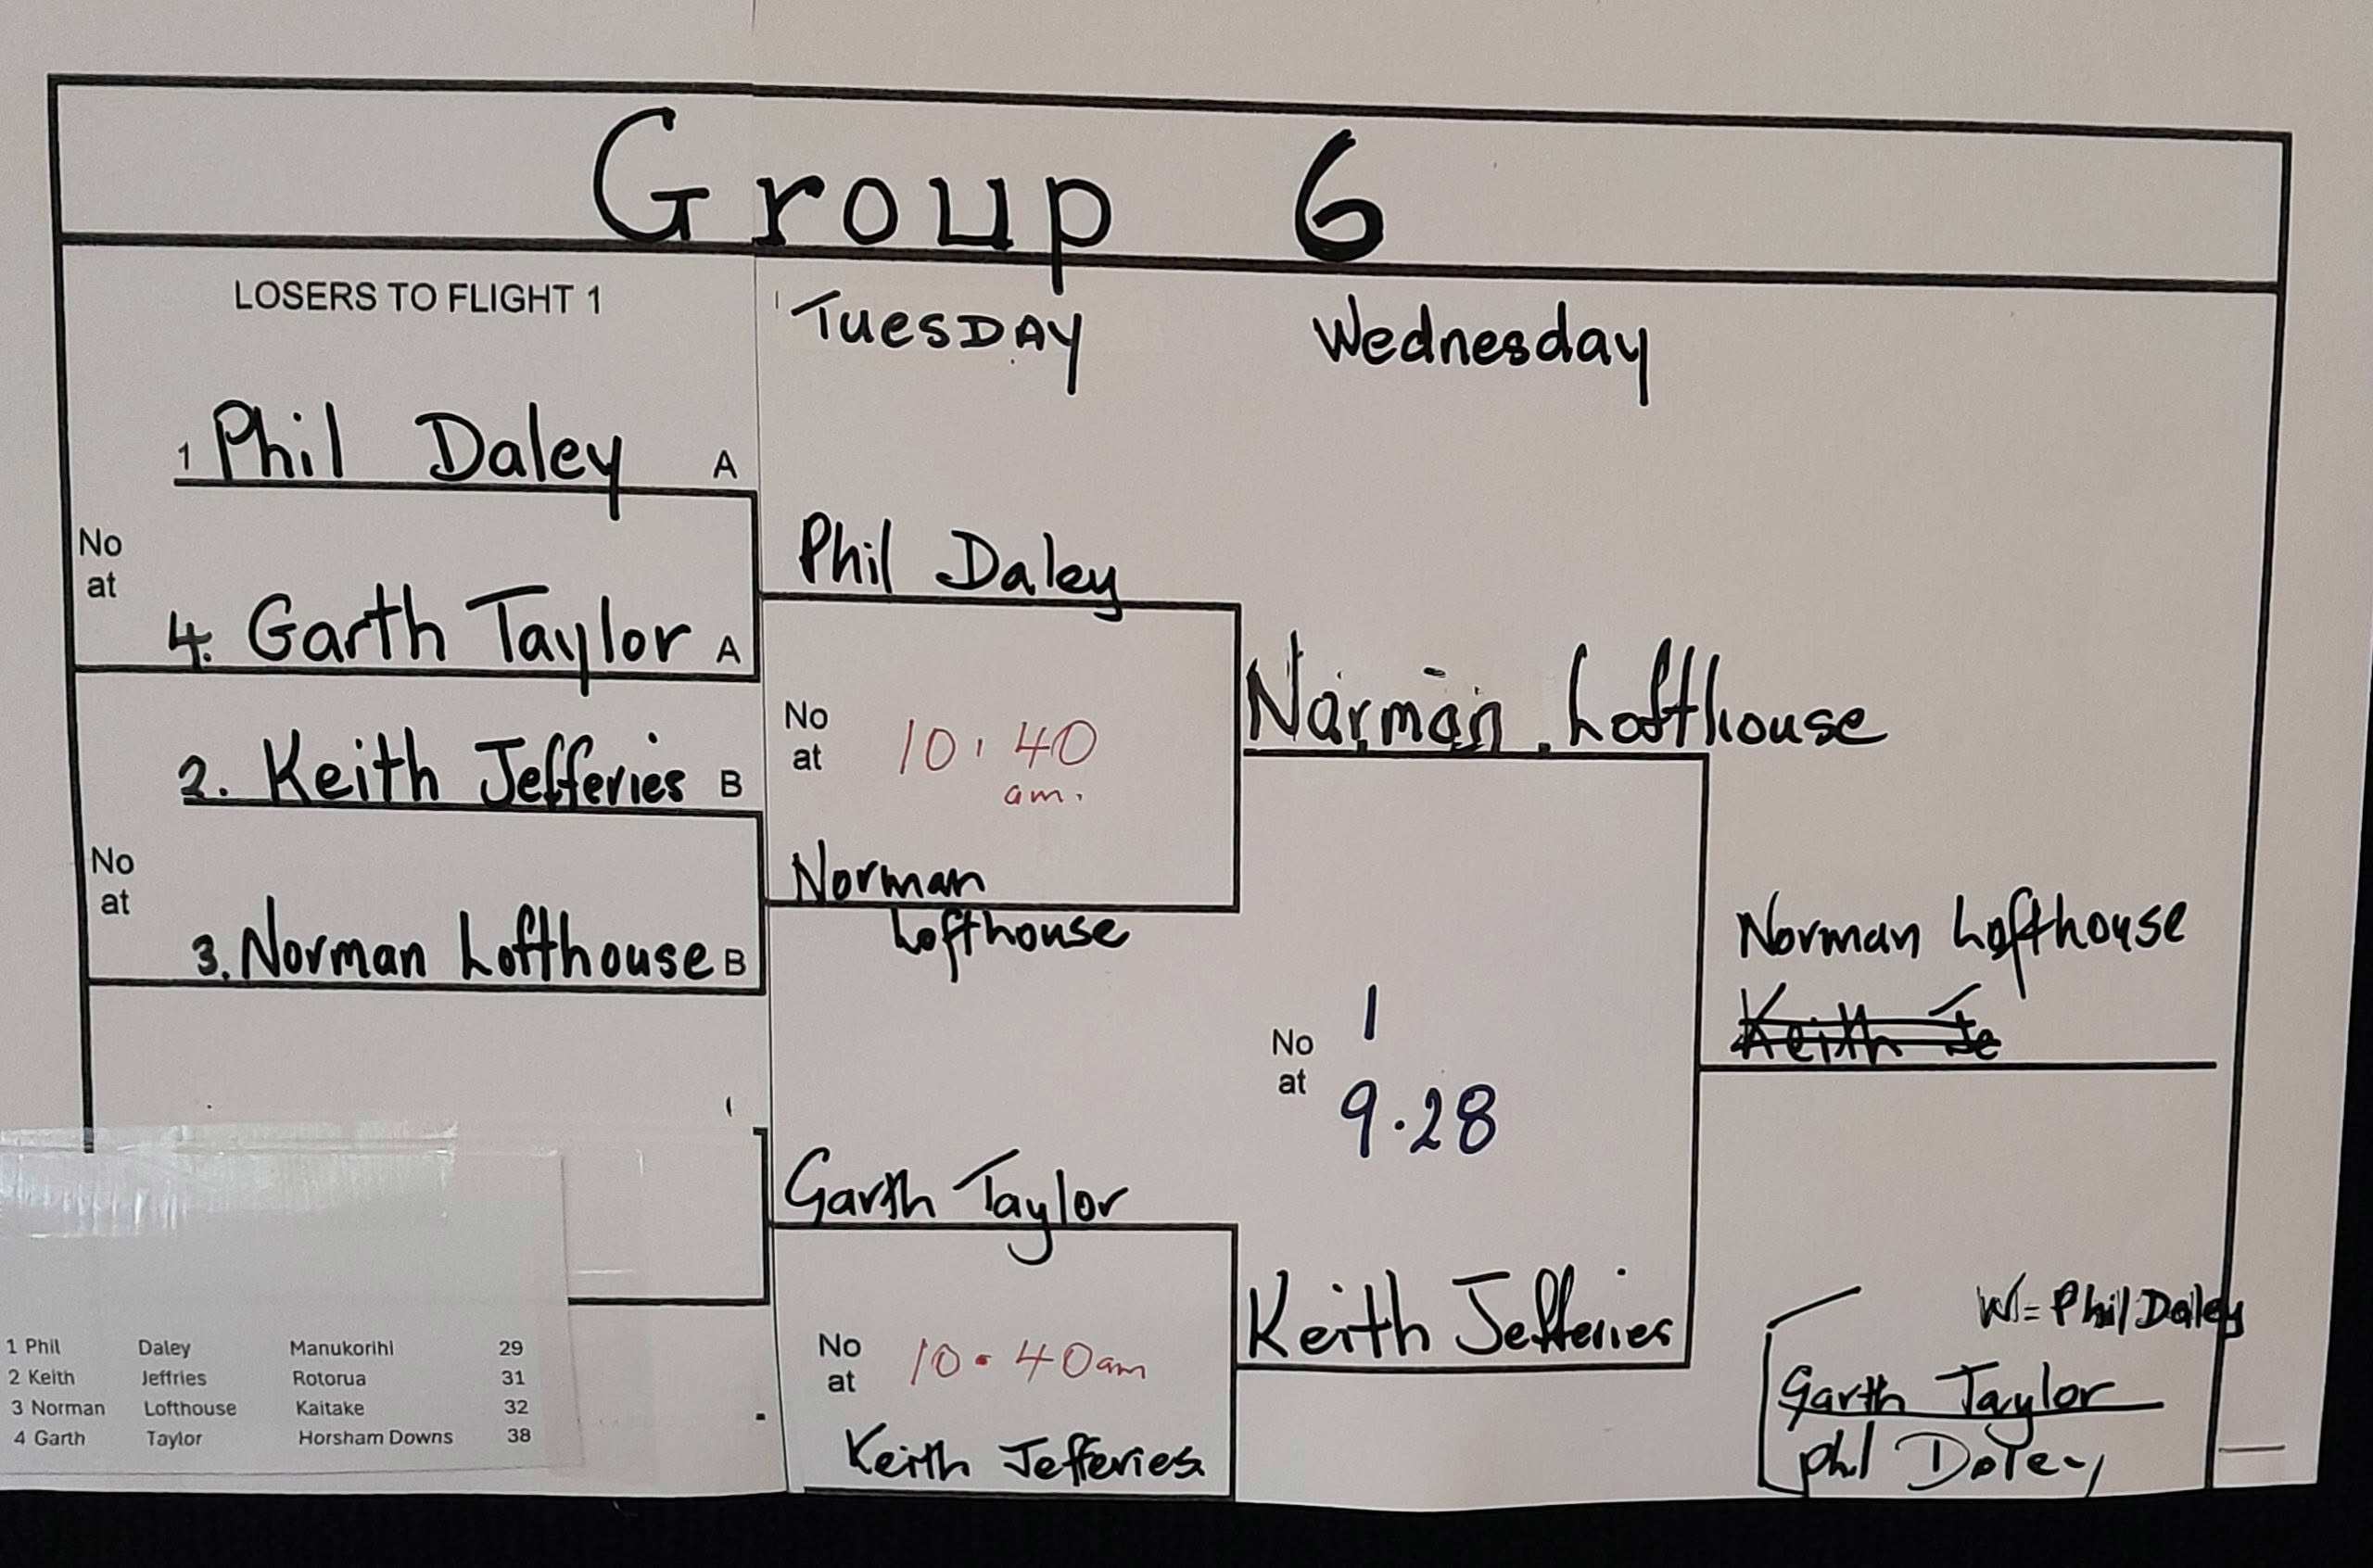 Group 6
LOSERS TO FLIGHT 1
TUESDAY
Wednesday
1 Phil Daley A
No
at
4. Garth Taylor A
2. Keith Jefferies B
No
at
3. Norman Lofthouse B
Phil Daley
No
at
10.40
am.
Norman
Lofthouse
Garth Taylor
No
at
10.40am
Keith Jefferies
Narman. Lofthouse
No 1
at 9.28
Keith Jefferies
Norman Lofthouse
Keith Je
W = Phil Daley
Garth Taylor
Phil Daley
1 Phil Daley Manukorihi 29
2 Keith Jeffries Rotorua 31
3 Norman Lofthouse Kaitake 32
4 Garth Taylor Horsham Downs 38